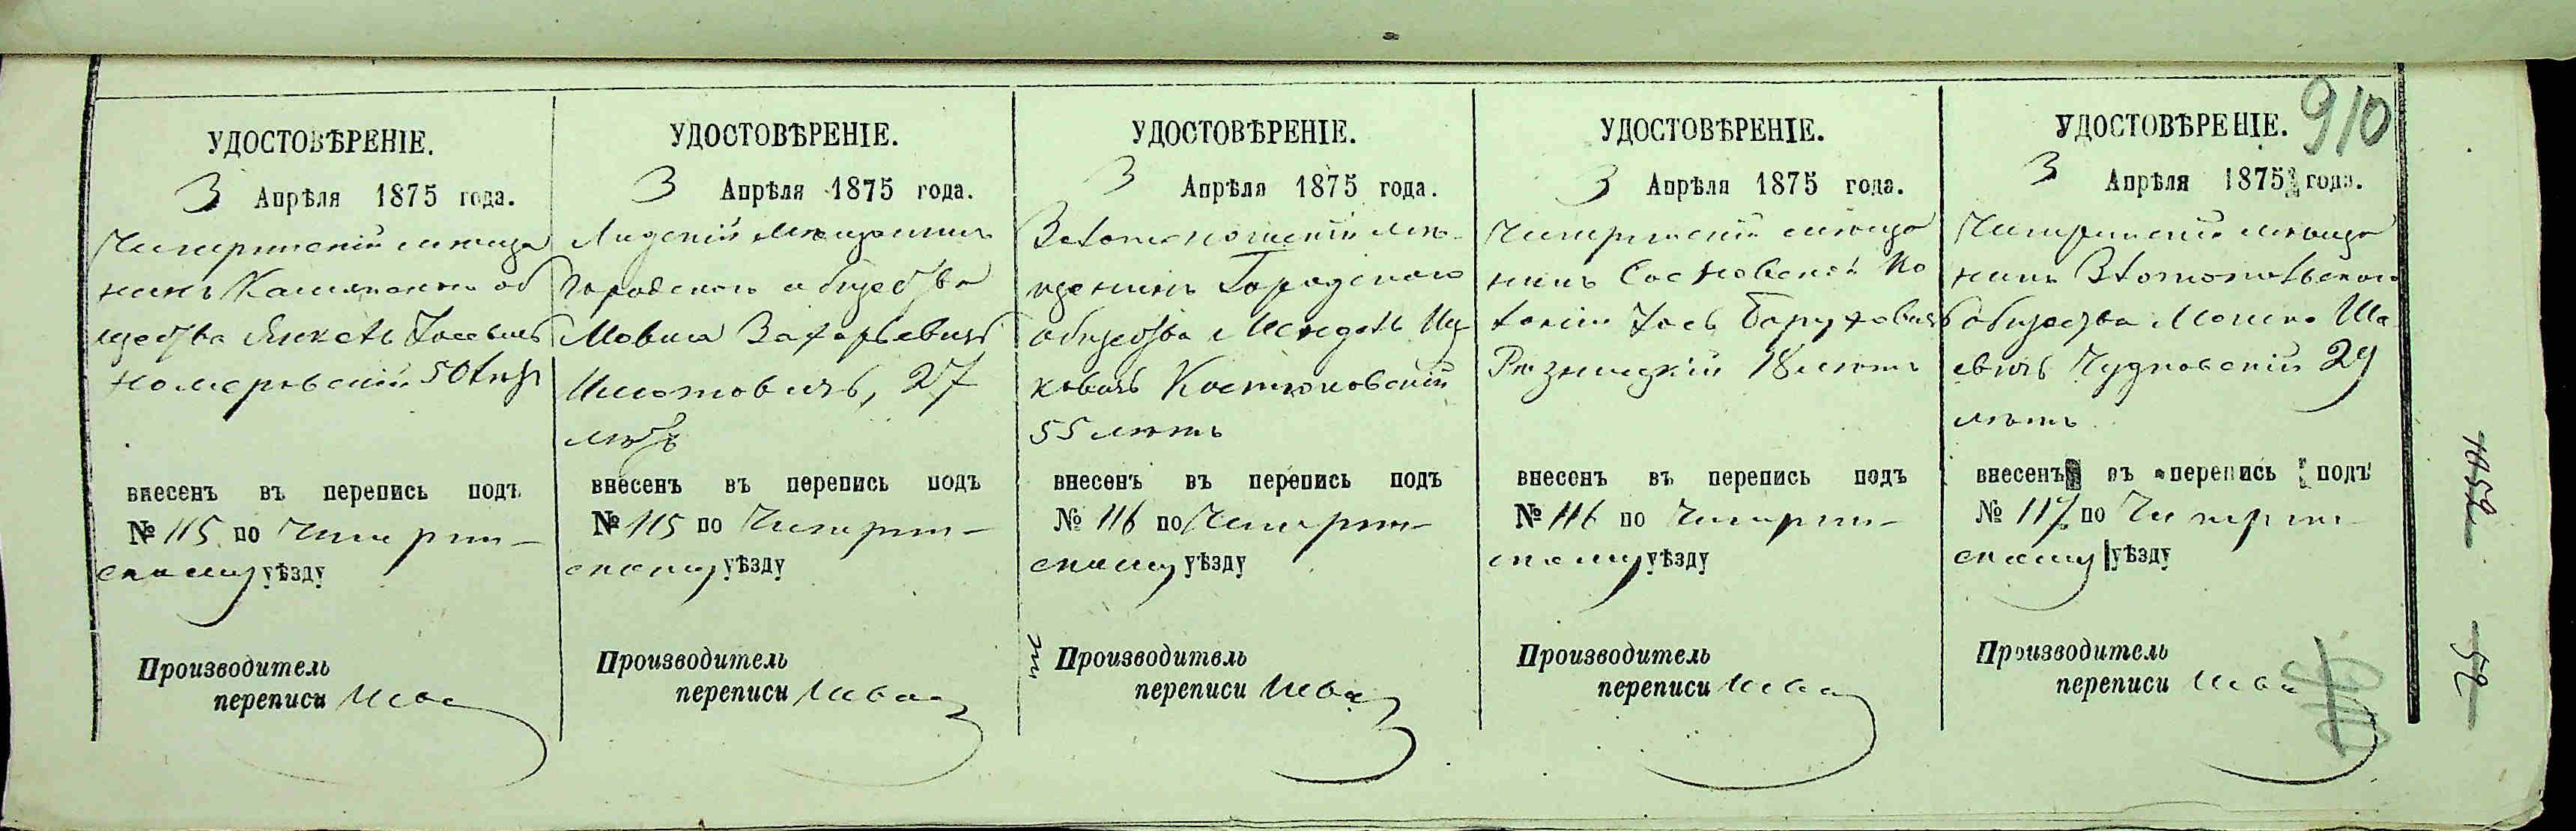 910
УДОСТОВѢРЕНІЕ.
3 Апрѣля 1875 года.
Чигиринскій мѣща
нинъ Каменскаго об
щества Янкель Іосевъ
50 лѣтъ
внесенъ въ перепись подъ
№ 115 по Чигирин-
скому уѣзду
Производитель
переписи
УДОСТОВѢРЕНІЕ.
3 Апрѣля 1875 года.
Лидскій мѣщанинъ
Городского общества
Мовша Захарьевичъ
27
лѣтъ
внесенъ въ перепись подъ
№ 115 по Чигирин-
скому уѣзду
Производитель
переписи
УДОСТОВѢРЕНІЕ.
3 Апрѣля 1875 года.
Златопольскій мѣ-
щанинъ Городского
общества Мендель Иц-
ковичъ
55 лѣтъ
внесенъ въ перепись подъ
№ 116 по Чигирин-
скому уѣзду
Производитель
переписи
УДОСТОВѢРЕНІЕ.
3 Апрѣля 1875 года.
Чигиринскій мѣща
нинъ Сосновской Ко
лоніи Іось Боруховичъ
Рѣзницкій 18 лѣтъ
внесенъ въ перепись подъ
№ 116 по Чигирин-
скому уѣзду
Производитель
переписи
УДОСТОВѢРЕНІЕ.
3 Апрѣля 1875 года.
Чигиринскій мѣща
нинъ Златопольскаго
общества Мошко Ша
евичъ Чудновскій 29
лѣтъ
внесенъ въ перепись подъ
№ 117 по Чигирин-
скому уѣзду
Производитель
переписи
52